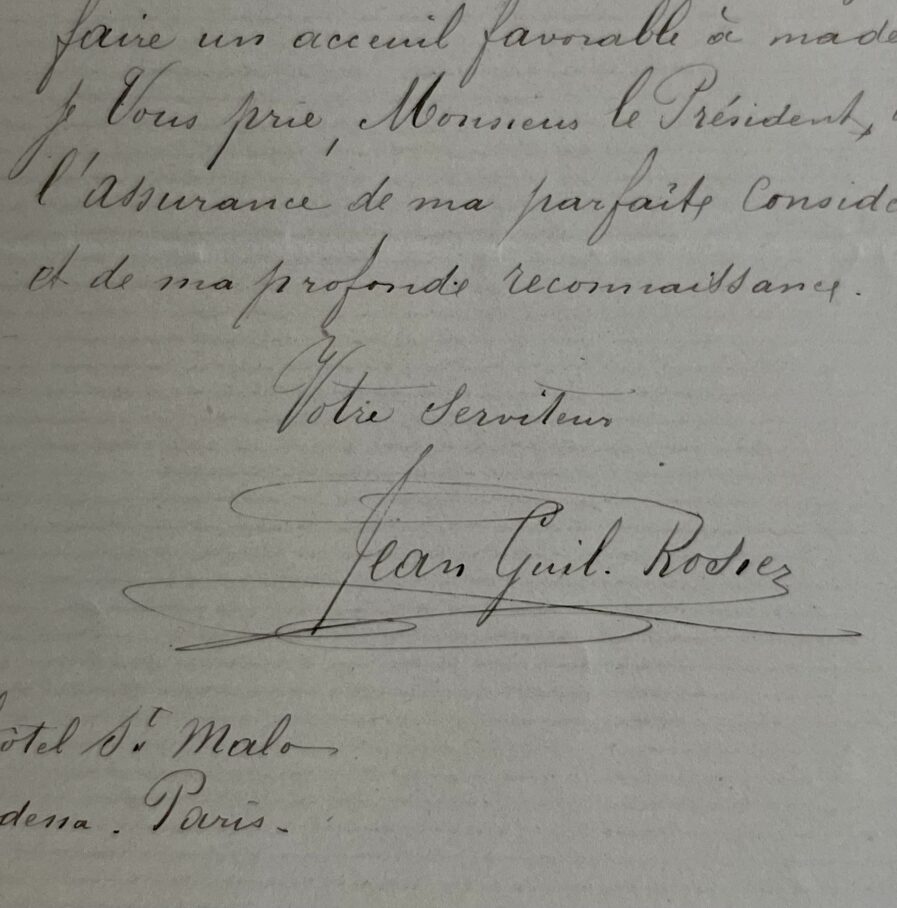 faire un acceuil favorable à made
je Vous prie, Monsieur le Président,
l'assurance de ma parfaite Conside
et de ma profonde reconnaissance.
Votre Serviteur
Jean Guil. Rosier
ôtel St. Malo
dessa. Paris.